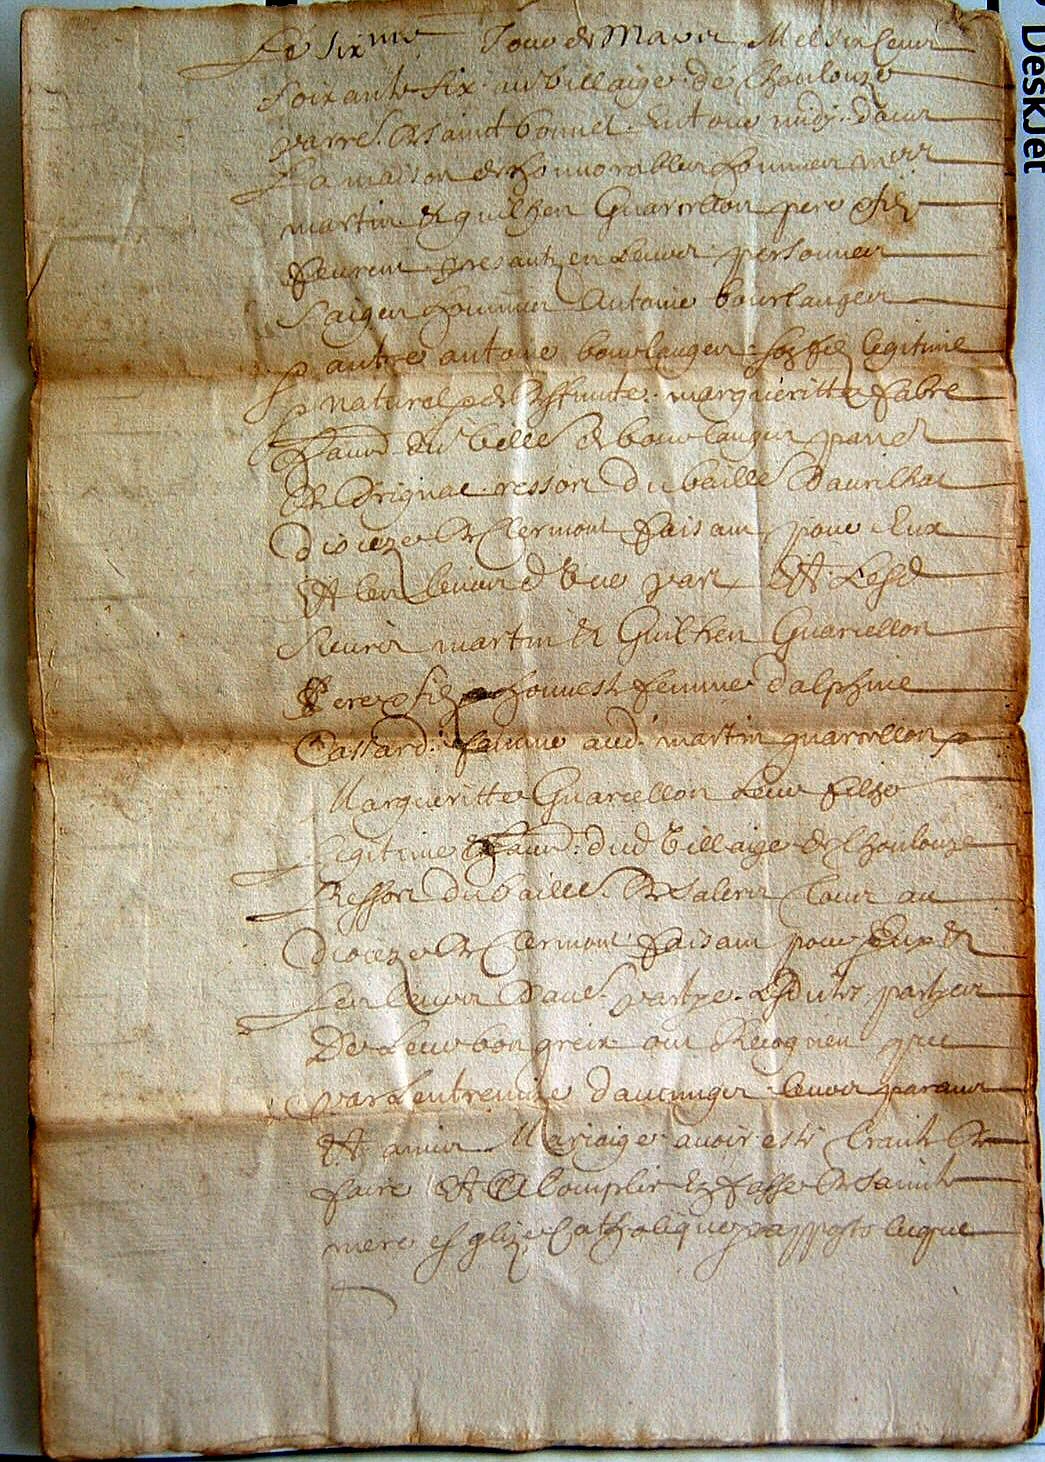 DeskJet
Le sixme Jour de Mars Mil six Cens
soixante six au villaige de Choulouze
parr. de sainct bonnet Entour midy dans
La maison de honnorables hommes mers
martin & guilhen Guarcellon pere & filz
feurent presantz en Leurs personnes
saiges hommes Antoine boulangeir
& autre antoine boulangeir son filz legitime
& naturel & de deffunte margueritte fabre
habt du de boulangeir parr.
de Drignac ressort du baille Daurilhac
Dioceze de Clermont faisant pour Eux
Et les Leurs d'Une part Et Lesd
sieurs martin & Guilhen Guarcellon
Pere & filz honneste femme dalphine
Cassard famme aud martin guarcellon &
Margueritte Guarcellon Leur filhe
Legitime habt dud Villaige de Choulouze
Ressort du baille de Salers au
Dioceze de Clermont faisant pour Eux &
Les Leurs Daue partye Lesdites partyes
De Leur bon grez ont Recogneu que
par Lentremize daucungs Leurs parans
Et amis Mariaige avoir esté traité de
faire Et Acomplir En fasse de sainte
mere esglize Catholique & appostolicque